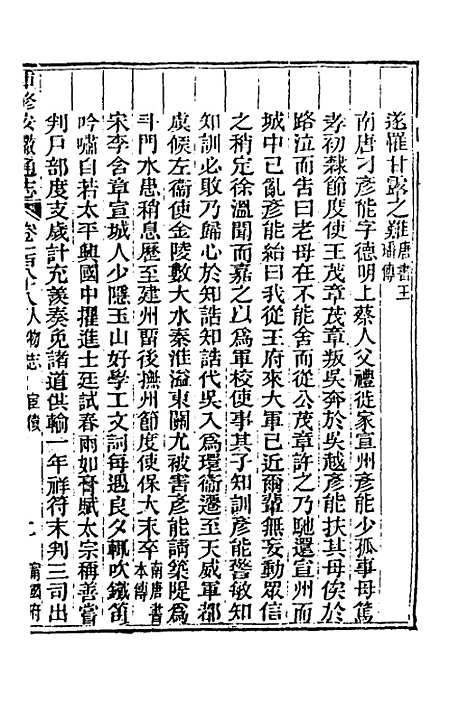 遂罹甘露之難唐書王璠傳
南唐刁彥能字德明上蔡人父禮徙家宣州彥能少孤事母篤
孝初隸節度使王茂章茂章叛吳奔於吳越彥能扶其母俟於
路泣而告曰老母在不能舍而從公茂章許之乃馳還宣州而
城中已亂彥能紿曰我從王府來大軍已近爾輩無妄動眾信
之稍定徐溫聞而嘉之以爲軍校使事其子知訓彥能警敏知
知訓必敗乃歸心於知誥知誥代吳入爲環衞遷至天威軍都
虞候左衞使金陵數大水秦淮溢東關尤被害彥能請築隄爲
斗門水患稍息歷至建州留後撫州節度使保大末卒南唐書本傳
宋李含章宣城人少隱玉山好學工文詞每遇良夕輒吹鐵笛
吟嘯自若太平興國中擢進士廷試春雨如膏賦太宗稱善嘗
判戶部度支歲計充羨奏免諸道供輸一年祥符末判三司出
重修安徽通志 卷二百八十八人物志 宦績 七 甯國府